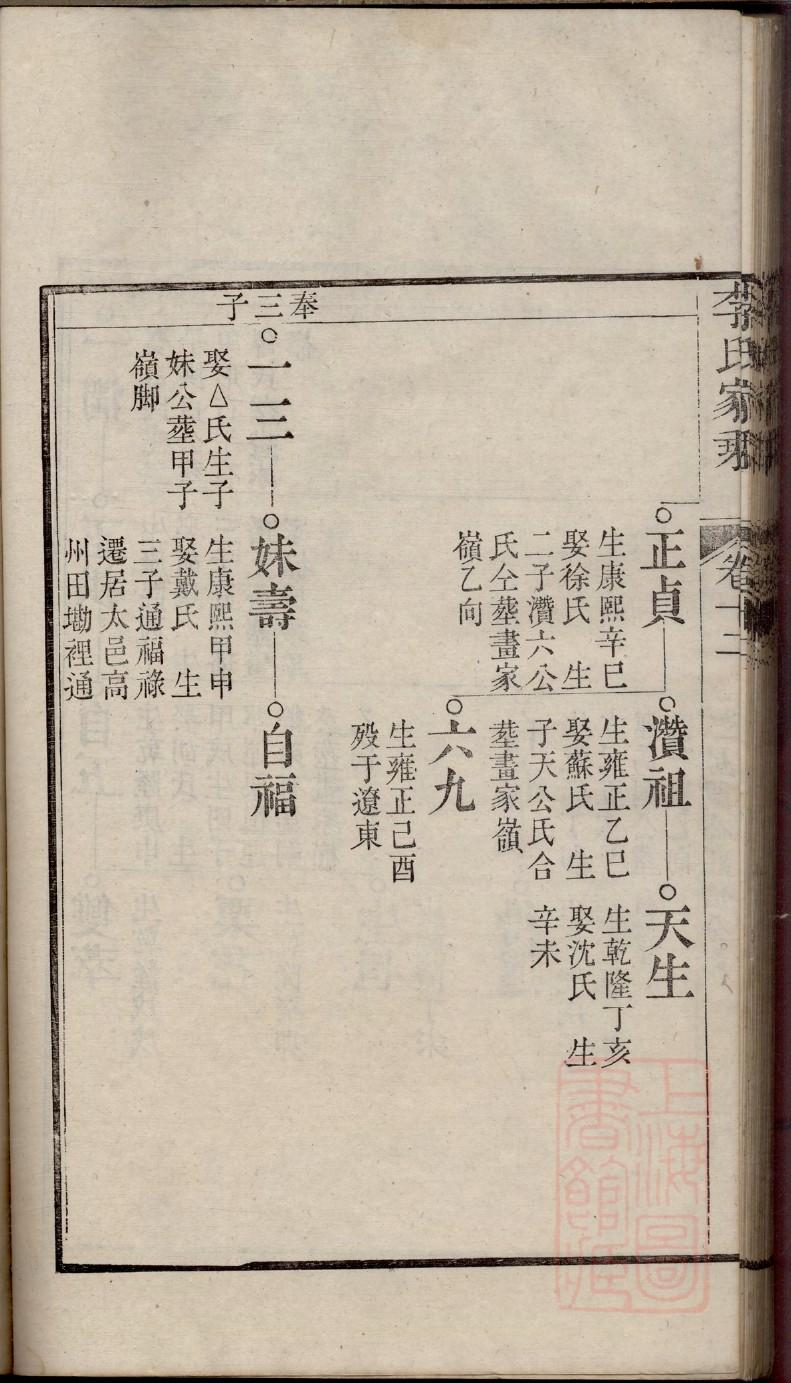 李氏家乘
卷十二
正貞
生康熙辛巳
娶徐氏 生
二子瓚六公
氏仝塟畫家
嶺乙向
瓚祖
生雍正乙巳
娶蘇氏 生
子天公氏合
塟畫家嶺
天生
生乾隆丁亥
娶沈氏 生
辛未
六九
生雍正己酉
歿于遼東
奉三子
一二三
娶△氏生子
妹公塟甲子
嶺脚
妹壽
生康熙甲申
娶戴氏 生
三子通福祿
遷居太邑高
州田墈裡通
自福
上海圖
書館藏